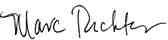 Marc Richter